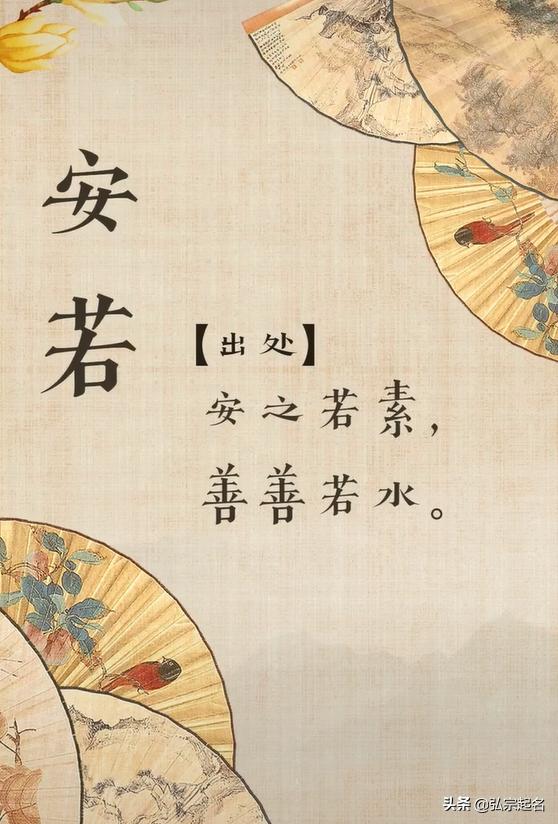 安
若
【出处】
安之若素，
善善若水。
头条 @弘宗起名